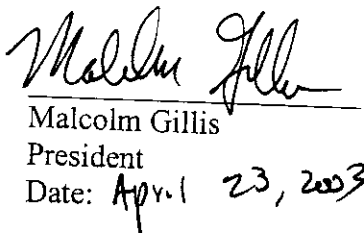 Malcolm Gillis
Malcolm Gillis
President
Date: April 23, 2003